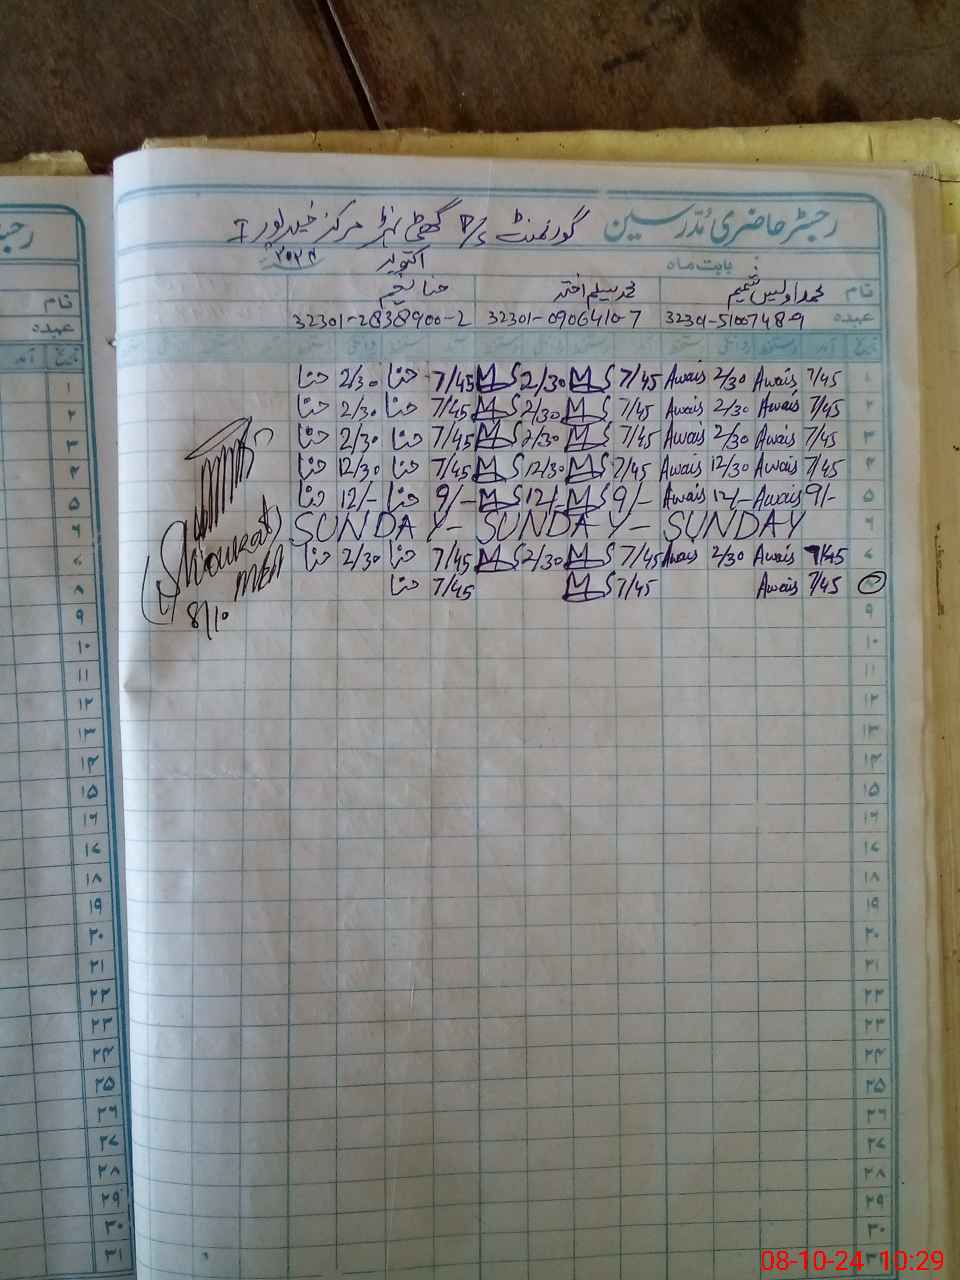 رجسٹر حاضری مُدرسین گورنمنٹ P/S مرکز خیرپور I
بابت ماہ اکتوبر ۲۰۲۴
نام محمد اویس شمیم محمد سلیم اختر حنا نعیم
عہدہ 32301-5100748-9 32301-0906410-7 32301-2838900-2
۱ 7/45 Awais 2/30 Awais 7/45 MS 2/30 MS 7/45 حنا 2/30 حنا
۲ 7/45 Awais 2/30 Awais 7/45 MS 2/30 MS 7/45 حنا 2/30 حنا
۳ 7/45 Awais 2/30 Awais 7/45 MS 2/30 MS 7/45 حنا 2/30 حنا
۴ 7/45 Awais 12/30 Awais 7/45 MS 12/30 MS 7/45 حنا 12/30 حنا
۵ 9/- Awais 12/- Awais 9/- MS 12/- MS 9/- حنا 12/- حنا
۶ SUNDAY - SUNDAY - SUNDAY
۷ 7/45 Awais 2/30 Awais 7/45 MS 2/30 MS 7/45 حنا 2/30 حنا
۸ 7/45 Awais 7/45 MS 7/45 حنا
(Showkat)
MEA
8/10
۹
۱۰
۱۱
۱۲
۱۳
۱۴
۱۵
۱۶
۱۷
۱۸
۱۹
۲۰
۲۱
۲۲
۲۳
۲۴
۲۵
۲۶
۲۷
۲۸
۲۹
۳۰
۳۱
نام
عہدہ
تاریخ آمد
۱
۲
۳
۴
۵
۶
۷
۸
۹
۱۰
۱۱
۱۲
۱۳
۱۴
۱۵
۱۶
۱۷
۱۸
۱۹
۲۰
۲۱
۲۲
۲۳
۲۴
۲۵
۲۶
۲۷
۲۸
۲۹
۳۰
۳۱
08-10-24 10:29